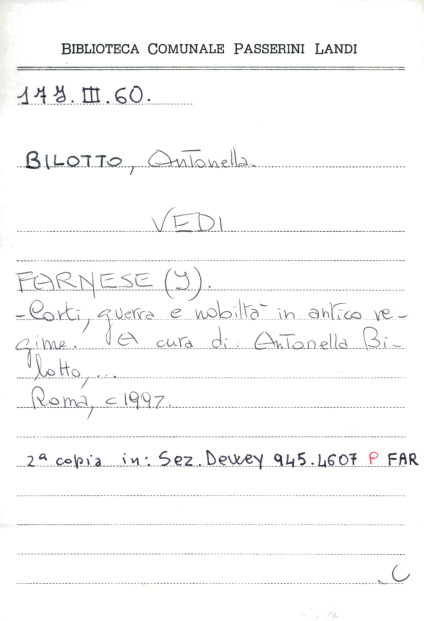 BIBLIOTECA COMUNALE PASSERINI LANDI
17J.III.60.
BILOTTO, Antonella.
VEDI
FARNESE (J).
-Corti, guerra e nobiltà in antico re-
gime. A cura di: Antonella Bi-
lotto,...
Roma, c1997.
2ª copia in: Sez. Dewey 945.4607 P FAR
.C